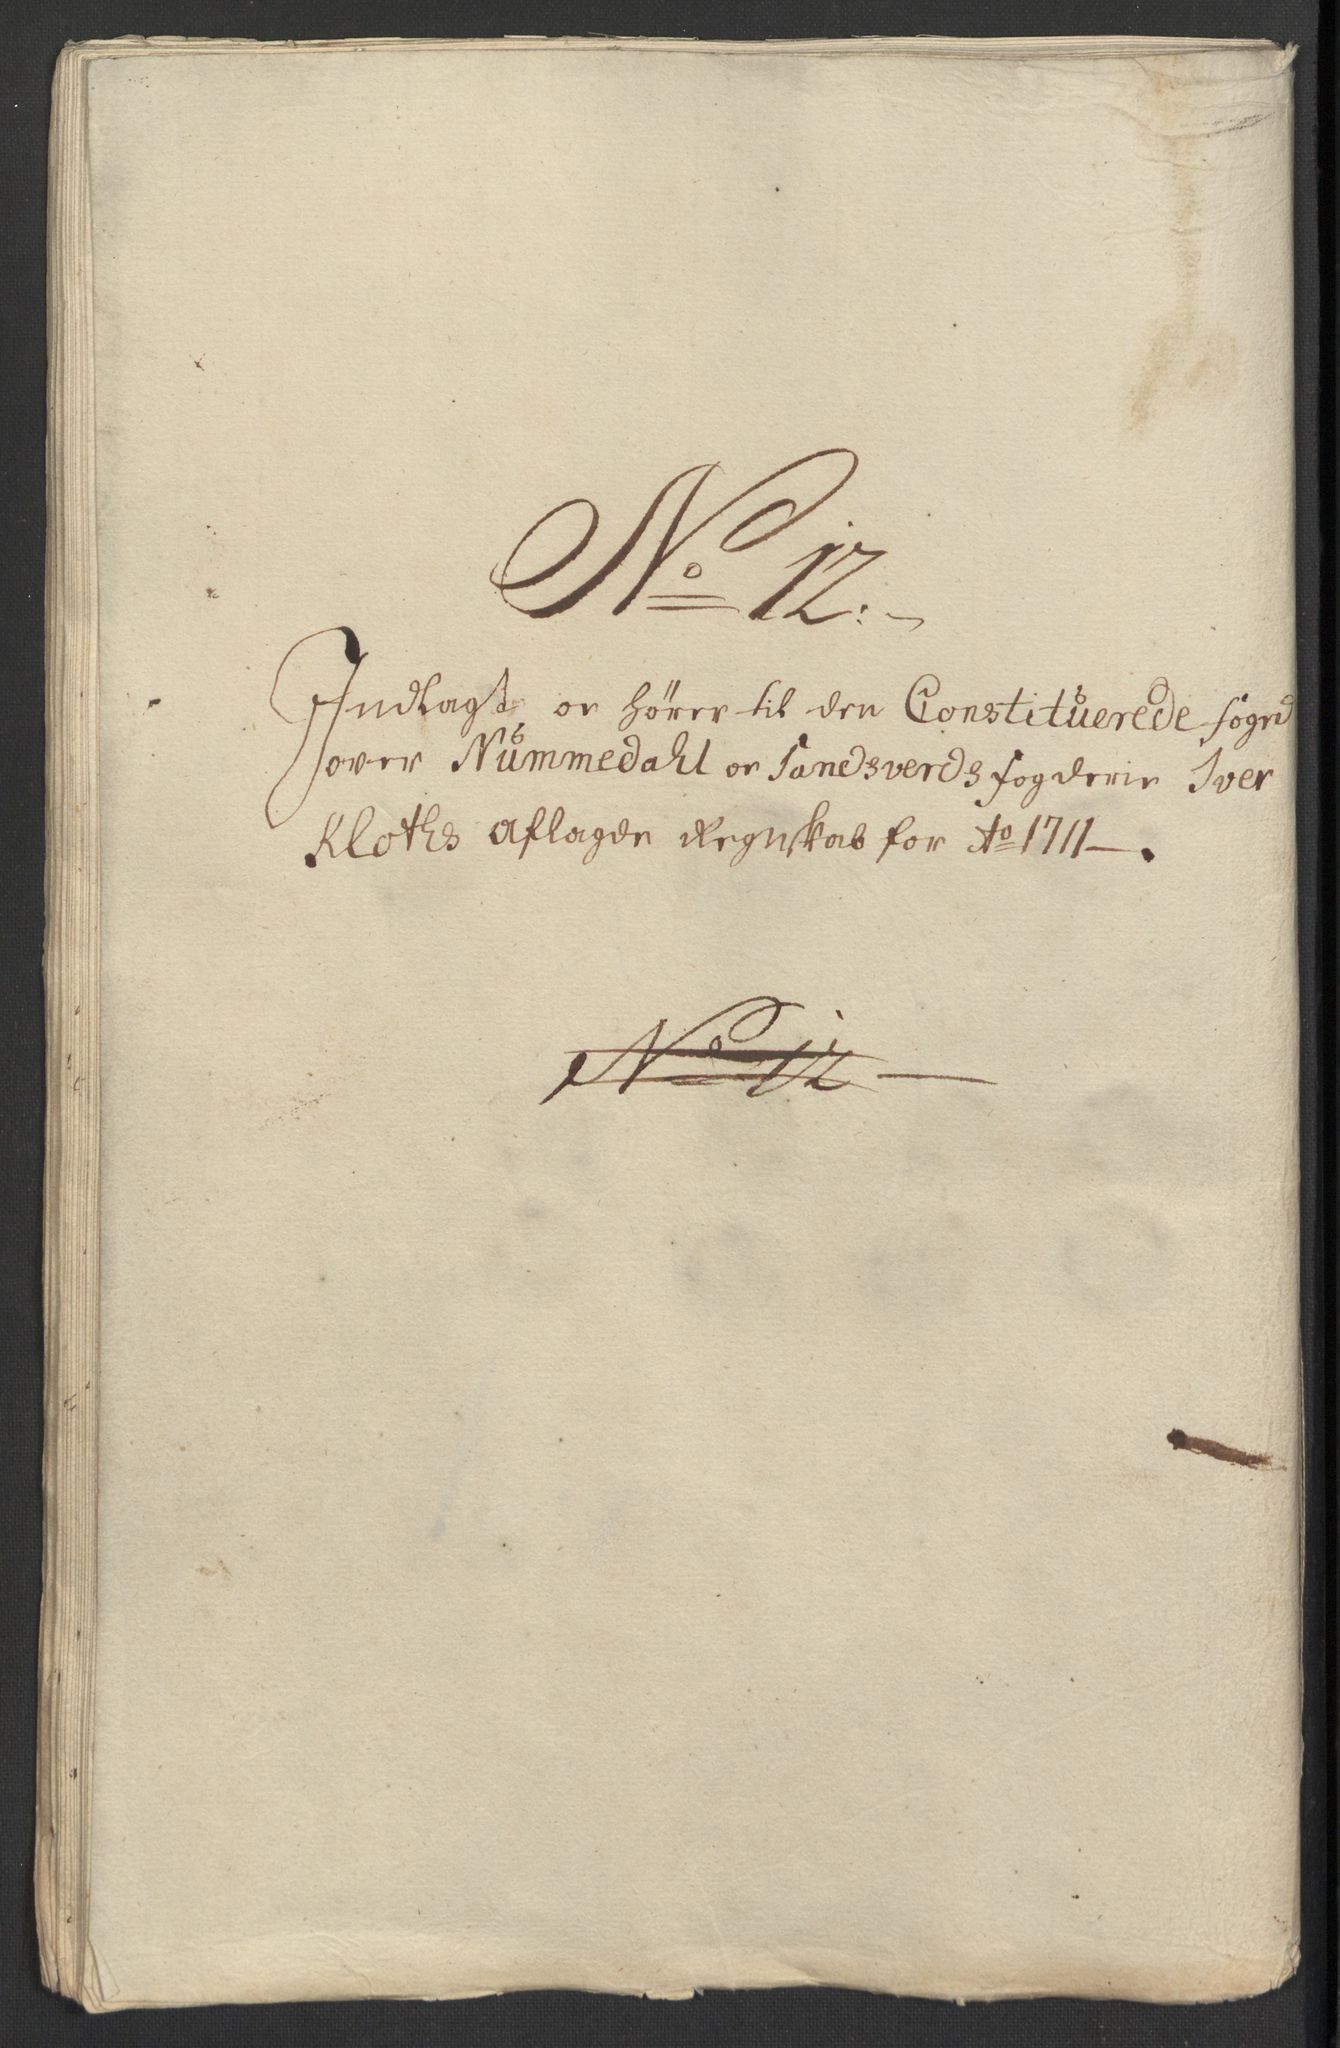 No 12:
Indlagt, oc hörer til den Constituerede foged
over Nummedahl oc Sandsverds fogderie Iver
Kloths aflagde Regnskab for Ao 1711
No 12